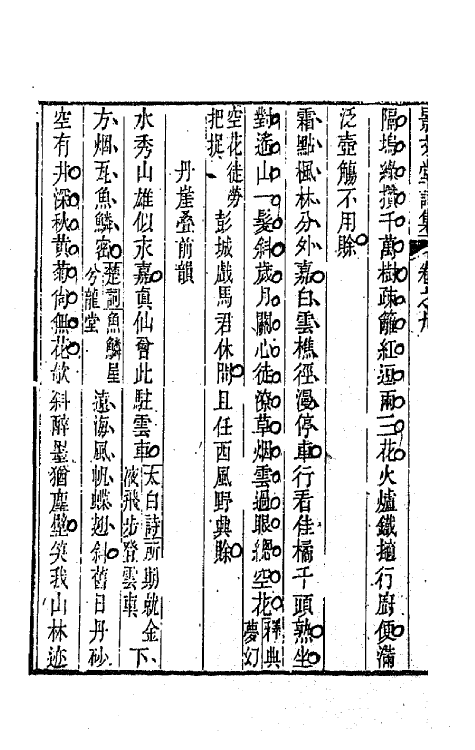 景文堂詩集　卷之九
隔塢綠攢千萬樹疎籬紅逗兩三花火爐鐵搥行廚便滿
泛壺觴不用賒
霜點楓林分外嘉白雲樵徑漫停車行看佳橘千頭熟坐
對遙山一髮斜歲月關心徒潦草烟雲過眼總空花釋典夢幻
空花徒勞把捉　彭城戲馬君休問且任西風野興賒
丹崖叠前韻
水秀山雄似永嘉真仙曾此駐雲車太白詩所期就金液飛步登雲車下
方烟瓦魚鱗密楚詞魚鱗屋兮龍堂　遠海風帆蝶翅斜舊日丹砂
空有井深秋黃菊尙無花欹斜醉墨猶塵壁笑我山林迹